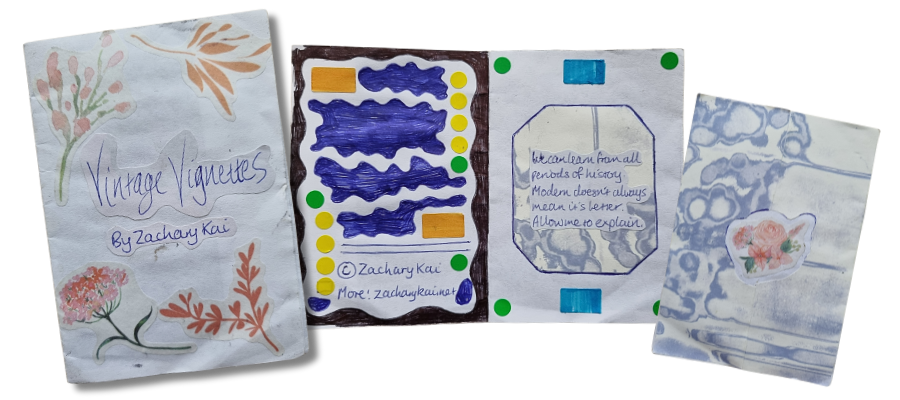 Vintage Vignettes
By Zachary Kai
© Zachary Kai
More! zacharykai.net
We can learn from all
periods of history
Modern doesn't always
mean it's better
Allow me to explain.